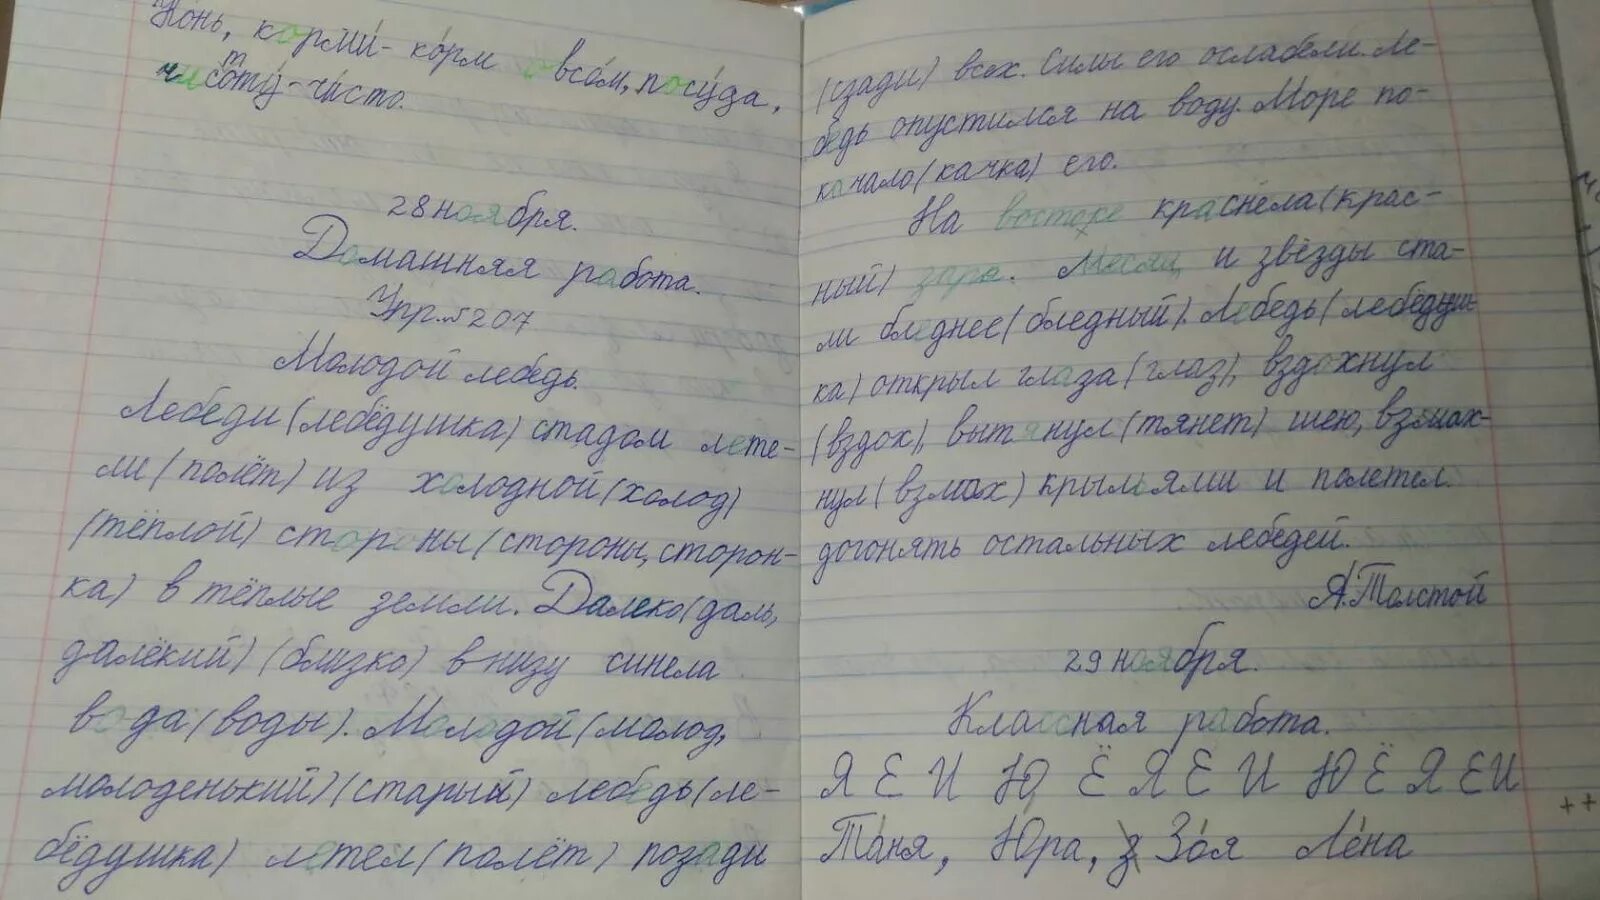 Конь, корми́ - ко́рм овсо́м, посу́да,
чистоту́ - чи́сто.
28 ноября.
Домашняя работа.
Упр. № 207
Молодой лебедь.
Лебеди (лебёдушка) стадом лете-
ли (полёт) из холодной (холод)
(тёплой) стороны (стороны, сторон-
ка) в тёплые земли. Далеко (даль,
далёкий) (близко) внизу синела
вода (воды). Молодой (молод,
молоденький) (старый) лебедь (ле-
бёдушка) летел (полёт) позади
(сзади) всех. Силы его ослабели. Ле-
бедь опустился на воду. Море по-
качало (качка) его.
На востоке краснела (крас-
ный) заря. Месяц и звёзды ста-
ли бледнее (бледный). Лебедь (лебёдуш-
ка) открыл глаза (глаз), вздохнул
(вздох), вытянул (тянет) шею, взмах-
нул (взмах) крыльями и полетел
догонять остальных лебедей.
Л. Толстой
29 ноября.
Классная работа.
Я Е И Ю Ё Я Е И Ю Ё Я Е И
Та́ня, Юра, З За́я Ле́на
++